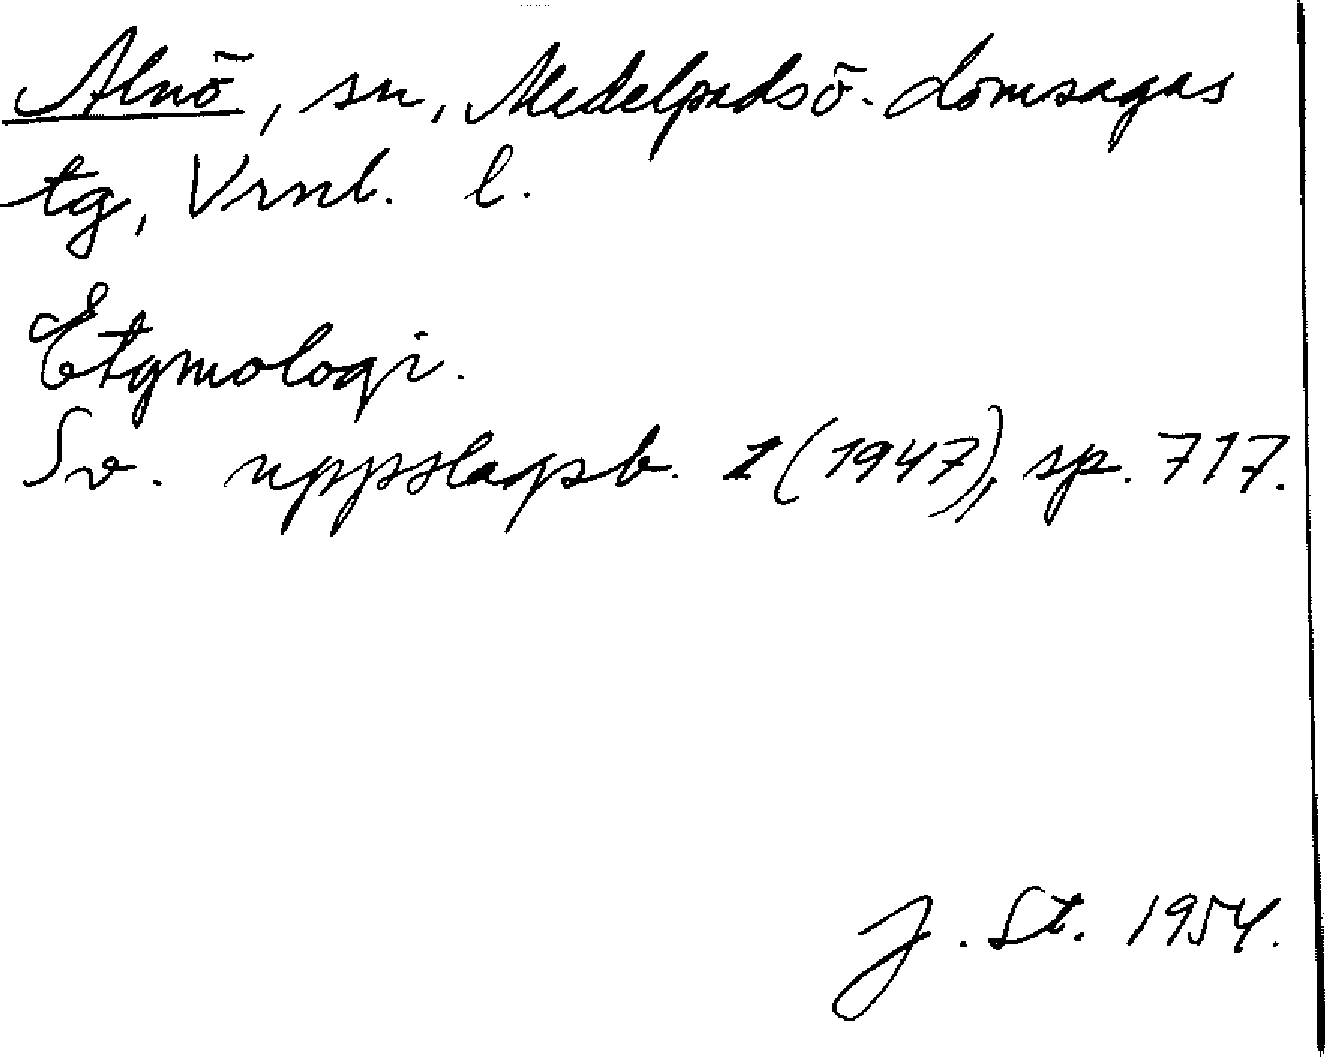 Alnö, sn, Medelpads ö. domsagas
tg, Vrnl. l.
Etymologi.
Sv. uppslagsb. 1 (1947), sp. 717.
J. St. 1954.